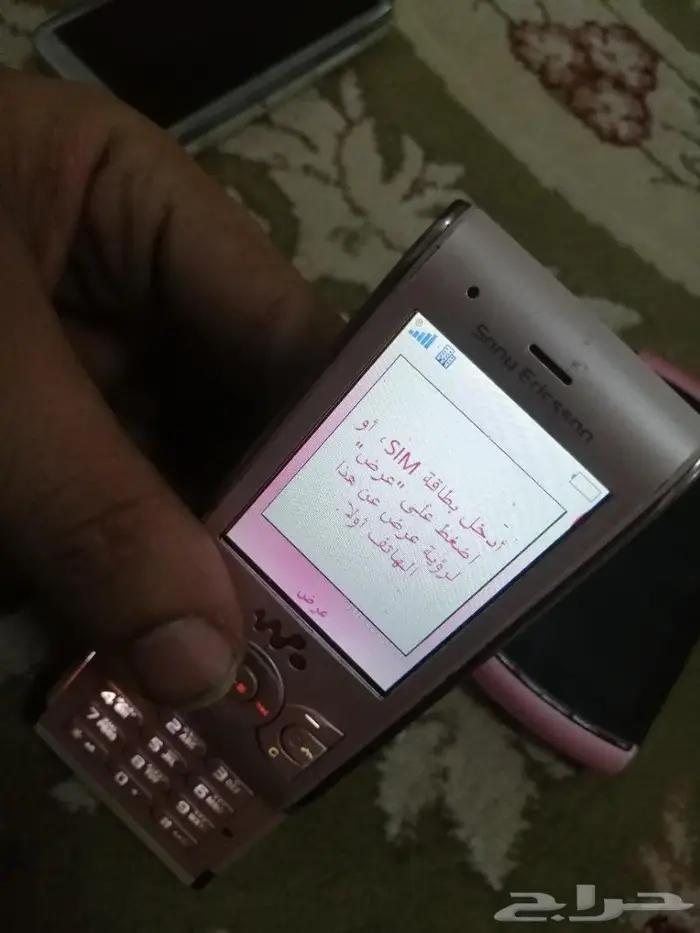 Sony Ericsson
أدخل بطاقة SIM، أو
اضغط على "عرض"
لرؤية عرض عن هذا
الهاتف أولاً.
عرض
C
2
3
4
5
6
7
8
9
0
#
حراج